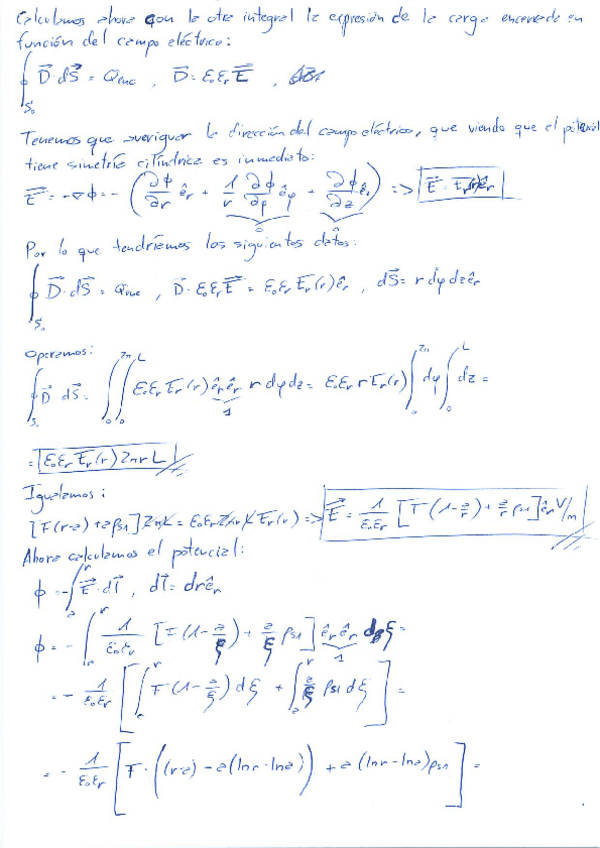 Calculamos ahora con la otra integral la expresión de la carga encerrada en
función del campo eléctrico:
∮_{S₀} D⃗·dS⃗ = Q_enc , D⃗ = ε₀ε_r E⃗ ,
Tenemos que averiguar la dirección del campo eléctrico, que viendo que el potencial
tiene simetría cilíndrica es inmediato:
E⃗ = -∇ϕ = - (∂ϕ/∂r ê_r + 1/r ∂ϕ/∂φ ê_φ + ∂ϕ/∂z ê_z) => E⃗ = E_r(r) ê_r
0 0
Por lo que tendríamos los siguientes datos:
∮_{S₀} D⃗·dS⃗ = Q_enc , D⃗ = ε₀ε_r E⃗ = ε₀ε_r E_r(r) ê_r , dS⃗ = r dφ dz ê_r
Operamos:
∮_{S₀} D⃗ dS⃗ = ∫₀^{2π} ∫₀^{L} ε₀ε_r E_r(r) ê_r ê_r r dφ dz = ε₀ε_r r E_r(r) ∫₀^{2π} dφ ∫₀^{L} dz =
1
= ε₀ε_r E_r(r) 2πr L
Igualamos:
[F(r-a) + aρ_{s1}] 2πL = ε₀ε_r 2πr L E_r(r) => E⃗ = 1/(ε₀ε_r) [F(1 - a/r) + a/r ρ_{s1}] ê_r V/m
Ahora calculamos el potencial:
ϕ = -∫_a^r E⃗·dl⃗ , dl⃗ = dr ê_r
ϕ = - ∫_a^r 1/(ε₀ε_r) [F(1 - a/ξ) + a/ξ ρ_{s1}] ê_r ê_r dξ =
1
= - 1/(ε₀ε_r) [∫_a^r F(1 - a/ξ) dξ + ∫_a^r a/ξ ρ_{s1} dξ] =
= - 1/(ε₀ε_r) [F·((r-a) - a(lnr - lna)) + a(lnr - lna)ρ_{s1}] =